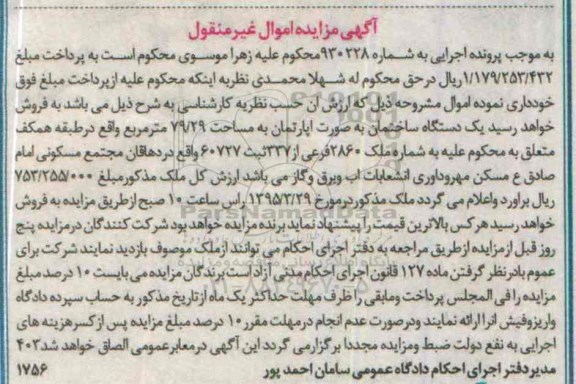 آگهی مزایده اموال غیرمنقول
به موجب پرونده اجرایی به شماره ۹۳۰۲۲۸محکوم علیه زهرا موسوی محکوم است به پرداخت مبلغ
۱/۱۷۹/۲۵۳/۴۳۲ریال درحق محکوم له شهلا محمدی نظربه اینکه محکوم علیه ازپرداخت مبلغ فوق
خودداری نموده اموال مشروحه ذیل که ارزش آن حسب نظریه کارشناسی به شرح ذیل می باشد به فروش
خواهد رسید یک دستگاه ساختمان به صورت اپارتمان به مساحت ۷۹/۲۹ مترمربع واقع درطبقه همکف
متعلق به محکوم علیه به شماره ملک ۲۸۶۰فرعی از۳۳۷ثبت ۶۰۷۲۷ واقع دردهاقان مجتمع مسکونی امام
صادق ع مسکن مهرودارای انشعابات اب وبرق وگاز می باشد ارزش کل ملک مذکورمبلغ ۷۵۳/۲۵۵/۰۰۰
ریال براورد واعلام می گردد ملک مذکوردرمورخ ۱۳۹۵/۳/۲۹راس ساعت ۱۰ صبح ازطریق مزایده به فروش
خواهد رسید هرکس بالاترین قیمت را پیشنهاد نماید برنده مزایده خواهد بود شرکت کنندگان درمزایده پنج
روز قبل از مزایده ازطریق مراجعه به دفتر اجرای احکام می توانند ازملک موصوف بازدید نمایند شرکت برای
عموم بادرنظر گرفتن ماده ۱۲۷ قانون اجرای احکام مدنی آزاد است برندگان مزایده می بایست ۱۰ درصد مبلغ
مزایده را فی المجلس پرداخت ومابقی را ظرف مهلت حداکثر یک ماه ازتاریخ مذکور به حساب سپرده دادگاه
واریزوفیش انرا ارائه نمایند ودرصورت عدم انجام درمهلت مقرر ۱۰ درصد مبلغ مزایده پس ازکسرهزینه های
اجرایی به نفع دولت ضبط ومزایده مجددا برگزارمی گردد این آگهی درمعابرعمومی الصاق خواهد شد۴۰۳
مدیردفتر اجرای احکام دادگاه عمومی سامان احمد پور
۱۷۵۶
ParsNamadData